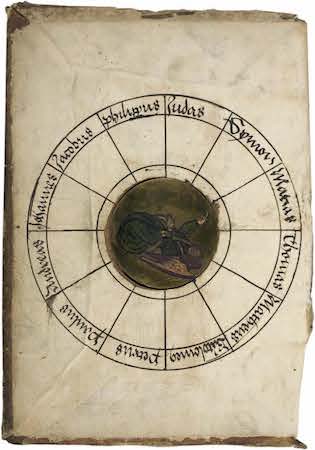 Judas
Symon
Matias
Thomas
Matheus
Petrus
Paulus
Andreas
Johannes
Jacobus
philippus